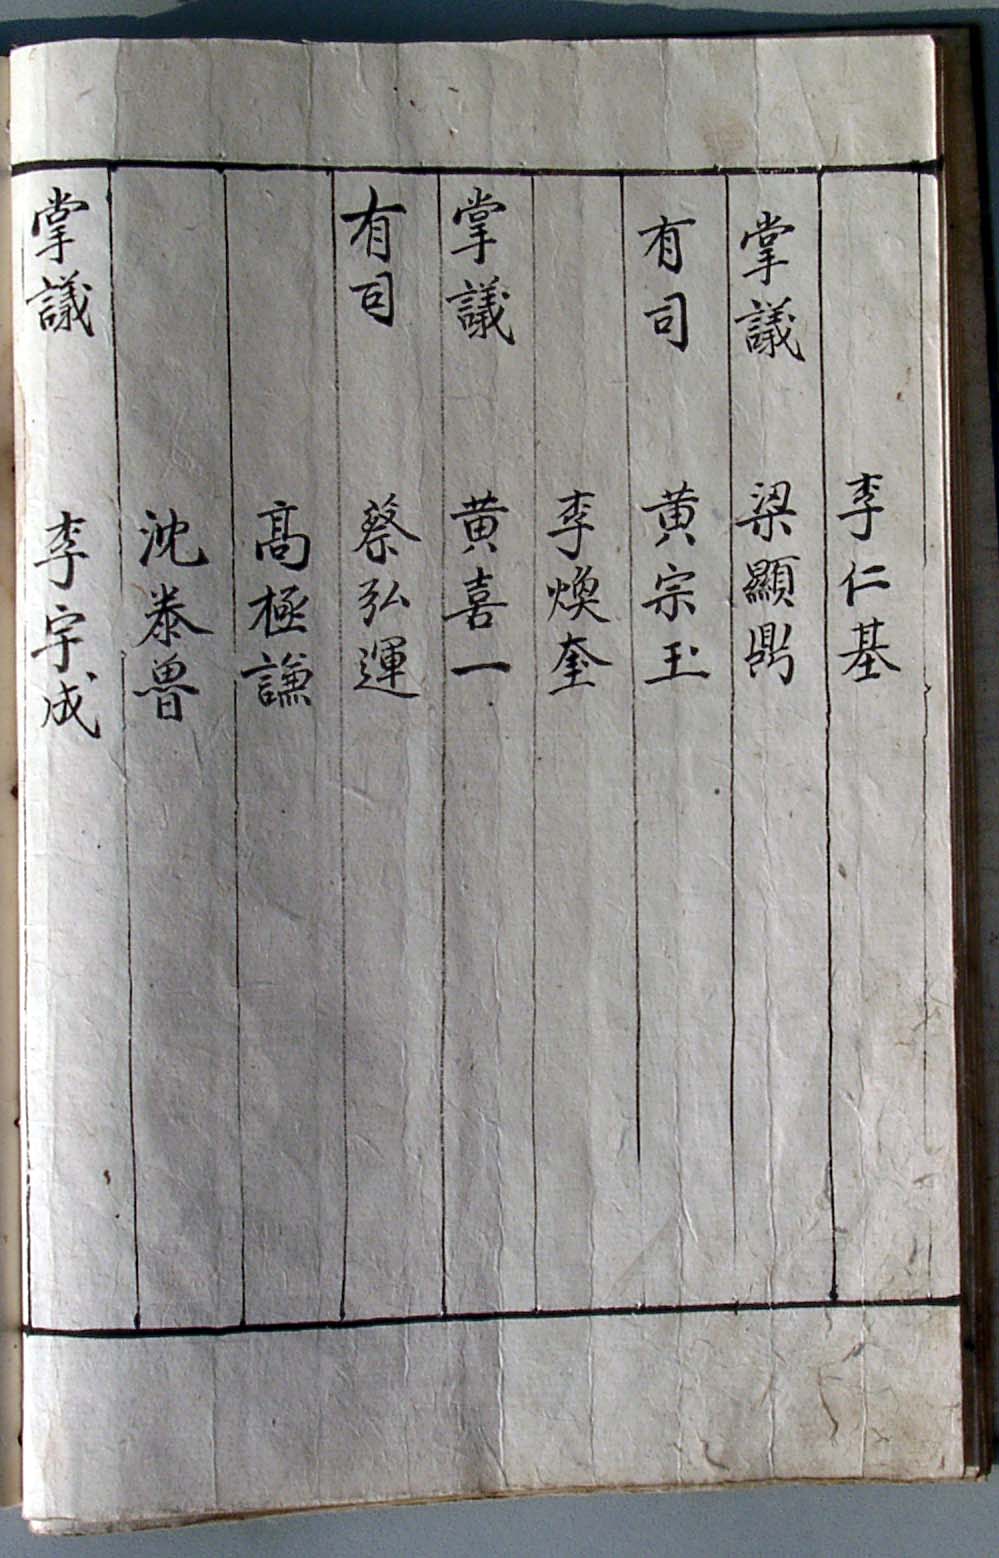 李仁基
掌議 梁顯鼎
有司 黄宗玉
李煥奎
掌議 黄喜一
有司 蔡弘運
高極謙
沈泰魯
掌議 李宇成